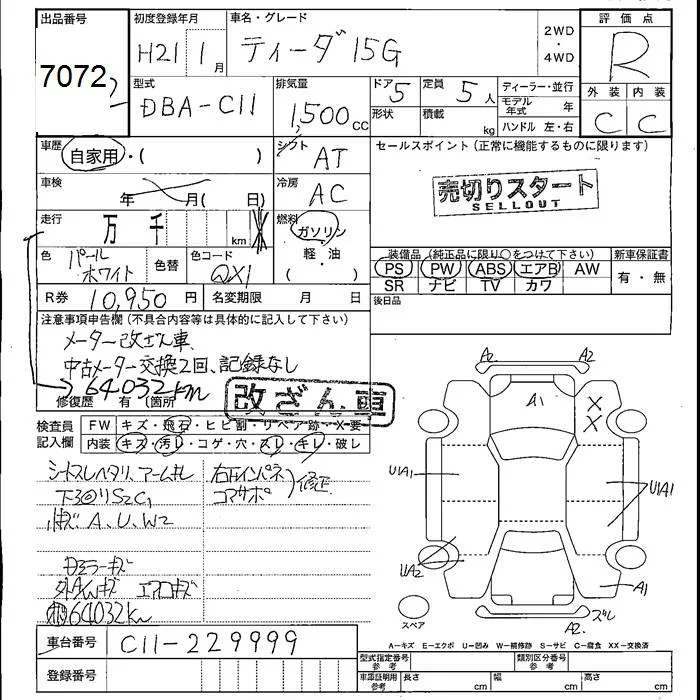 出品番号
7072
初度登録年月
H21 1月
車名・グレード
ティーダ 15G
2WD
・
4WD
評価点
R
型式
DBA-C11
排気量
1,500cc
ドア 5
形状
定員 5人
積載 kg
ディーラー・並行
モデル年式 年
ハンドル 左・右
外装 内装
C C
車歴
自家用・( )
シフト AT
セールスポイント(正常に機能するものに限ります)
売切りスタート
SELLOUT
車検
年 月( 日)
冷房 AC
走行
万 千 km
燃料
ガソリン
軽・油
・( )
色 パールホワイト
色替
色コード QX1
装備品(純正品に限り○をつけて下さい)
PS PW ABS エアB AW
SR ナビ TV カワ
新車保証書
有・無
R券 10,950円
名変期限 月 日
後日品
注意事項申告欄(不具合内容等は具体的に記入して下さい)
メーター改ざん車、
中古メーター交換2回、記録なし
64032km
改ざん車
修復歴 有(箇所
検査員記入欄
FW キズ・飛石・ヒビ割・リペア跡・X要
内装 キズ・汚レ・コゲ・穴・スレ・キレ・破レ
シートスレヘタリ、アームキレ
下3◎リS2C1
A、U、W2
右Fインパネ
コアサポ
修正
ミラーキズ
エアロキズ
64032km
A2 A2
A1
X
X
U1A1
U1A1
UA2
A1
ズレ
A2
スペア
A-キズ E-エクボ U-凹み W-補修跡 S-サビ C-腐食 XX-交換済
車台番号 C11-229999
登録番号
型式指定番号参考
類別区分番号参考
車庫証明用参考
長さ cm
幅 cm
高さ cm